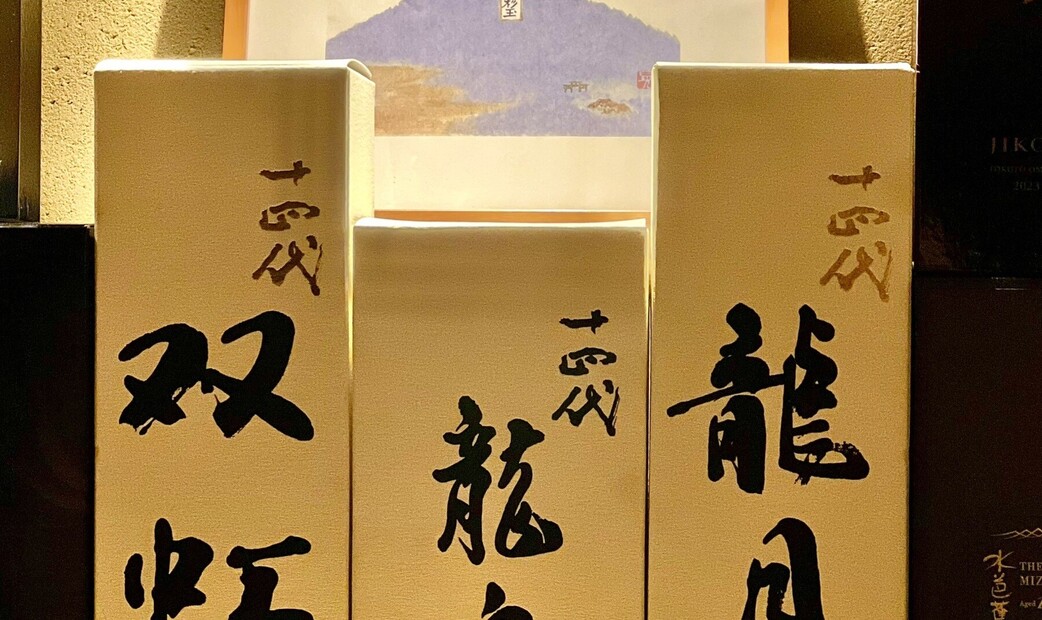 杉玉
十四代
双虹
十四代
龍
十四代
龍月
JIKO
2023
水芭蕉
THE
MIZ
Aged